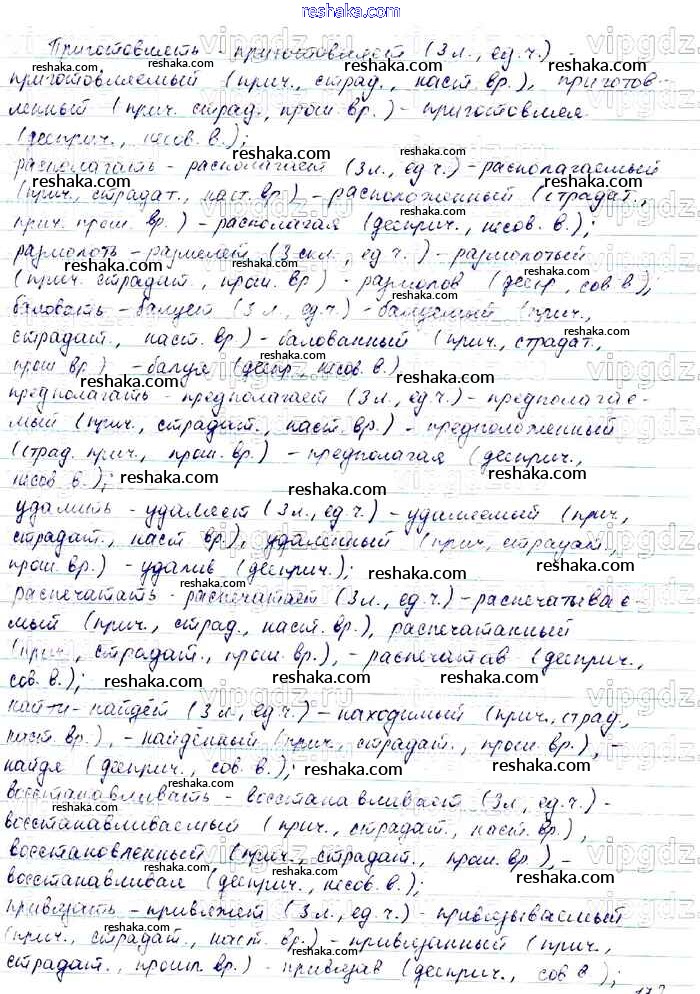 Приготовлять - приготовляет (3 л., ед.ч.) -
приготовляемый (прич., страд., наст. вр.), приготов-
ленный (прич. страд., прош. вр.) - приготовляя
(дееприч., несов. в.);
располагать - располагает (3 л., ед ч.) - располагаемый
(прич., страдат., наст. вр.) - расположенный (страдат.,
прич. прош. вр.) - располагая (дееприч., несов. в.);
размолоть - размелет (3 скл., ед ч.) - размолотый
(прич. страдат., прош. вр) - размолов (деепр., сов в.);
баловать - балует (3 л., ед.ч.) - балуемый (прич.,
страдат., наст. вр.) - балованный (прич., страдат.,
прош вр) - балуя (деепр., несов. в.)
предполагать - предполагает (3 л., ед.ч.) - предполагае-
мый (прич., страдат., наст. вр.) - предположенный
(страд. прич., прош. вр.) - предполагая (дееприч.,
несов. в.);
удалить - удаляет (3 л., ед.ч.) - удаляемый (прич,
страдат., наст вр.), удаленный (прич, страдат.,
прош. вр.) - удалив (дееприч.);
распечатать - распечатает (3 л., ед.ч.) - распечатывае-
мый (прич., страд., наст. вр.), распечатанный
(прич., страдат., прош. вр.), - распечатав (дееприч.,
сов. в.);
найти - найдёт (3 л., ед.ч.) - находимый (прич., страд.,
наст. вр.), - найденный (прич., страдат., прош. вр.), -
найдя (дееприч., сов. в.);
восстанавливать - восстанавливает (3 л., ед.ч.) -
восстанавливаемый (прич., страдат., наст. вр.),
восстановленный (прич., страдат., прош. вр.), -
восстанавливая (дееприч., несов. в.);
привязать - привяжет (3 л., ед.ч.) - привязываемый
(прич., страдат., наст. вр.) - привязанный (прич.,
страдат., прошл. вр.) - привязав (дееприч., сов в);
reshaka.com
vipgdz.ru